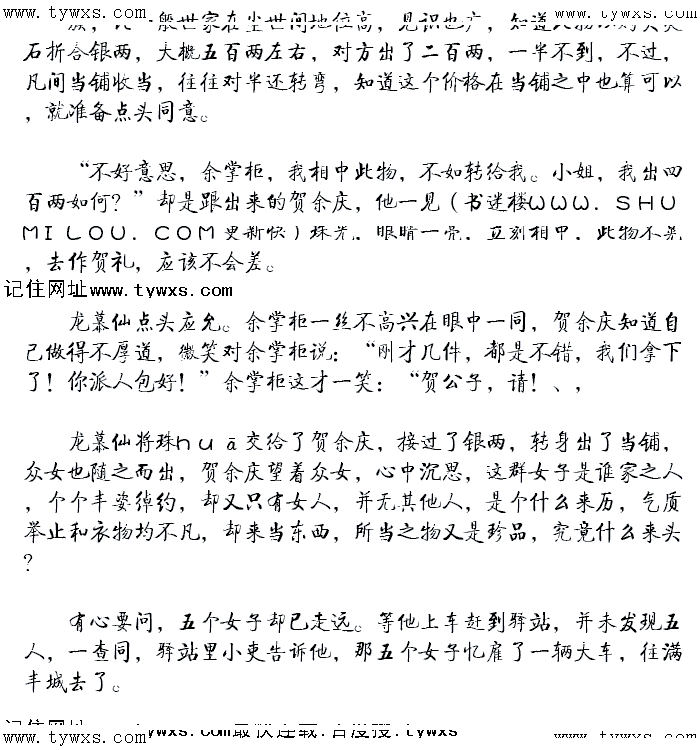 www.tywxs.com www.tywxs.com www.tywxs.com www.tywxs.com
般世家在尘世间地位高，见识也广，知道
石折合银两，大概五百两左右，对方出了二百两，一半不到，不过，
凡间当铺收当，往往对半还转弯，知道这个价格在当铺之中也算可以
，就准备点头同意。
“不好意思，余掌柜，我相中此物，不如转给我。小姐，我出四
百两如何？”却是跟出来的贺余庆，他一见（书迷楼ＷＷＷ．ＳＨＵ
ＭＩＬＯＵ．ＣＯＭ更新快）珠光，眼睛一亮，立刻相中，此物不光
，去作贺礼，应该不会差。
记住网址www.tywxs.com
龙慕仙点头应允。余掌柜一丝不高兴在眼中一同，贺余庆知道自
己做得不厚道，微笑对余掌柜说：“刚才几件，都是不错，我们拿下
了！你派人包好！”余掌柜这才一笑：“贺公子，请！、，
龙慕仙将珠ｈｕā交给了贺余庆，接过了银两，转身出了当铺，
众女也随之而出，贺余庆望着众女，心中沉思，这群女子是谁家之人
，个个丰姿绰约，却又只有女人，并无其他人，是个什么来历，气质
举止和衣物均不凡，却来当东西，所当之物又是珍品，究竟什么来头
？
有心要问，五个女子却已走远。等他上车赶到驿站，并未发现五
人，一查同，驿站里小吏告诉他，那五个女子忆雇了一辆大车，往满
丰城去了。
记住网址www.tywxs.com最快连载.百度搜.tywxs
www.tywxs.com www.tywxs.com www.tywxs.com